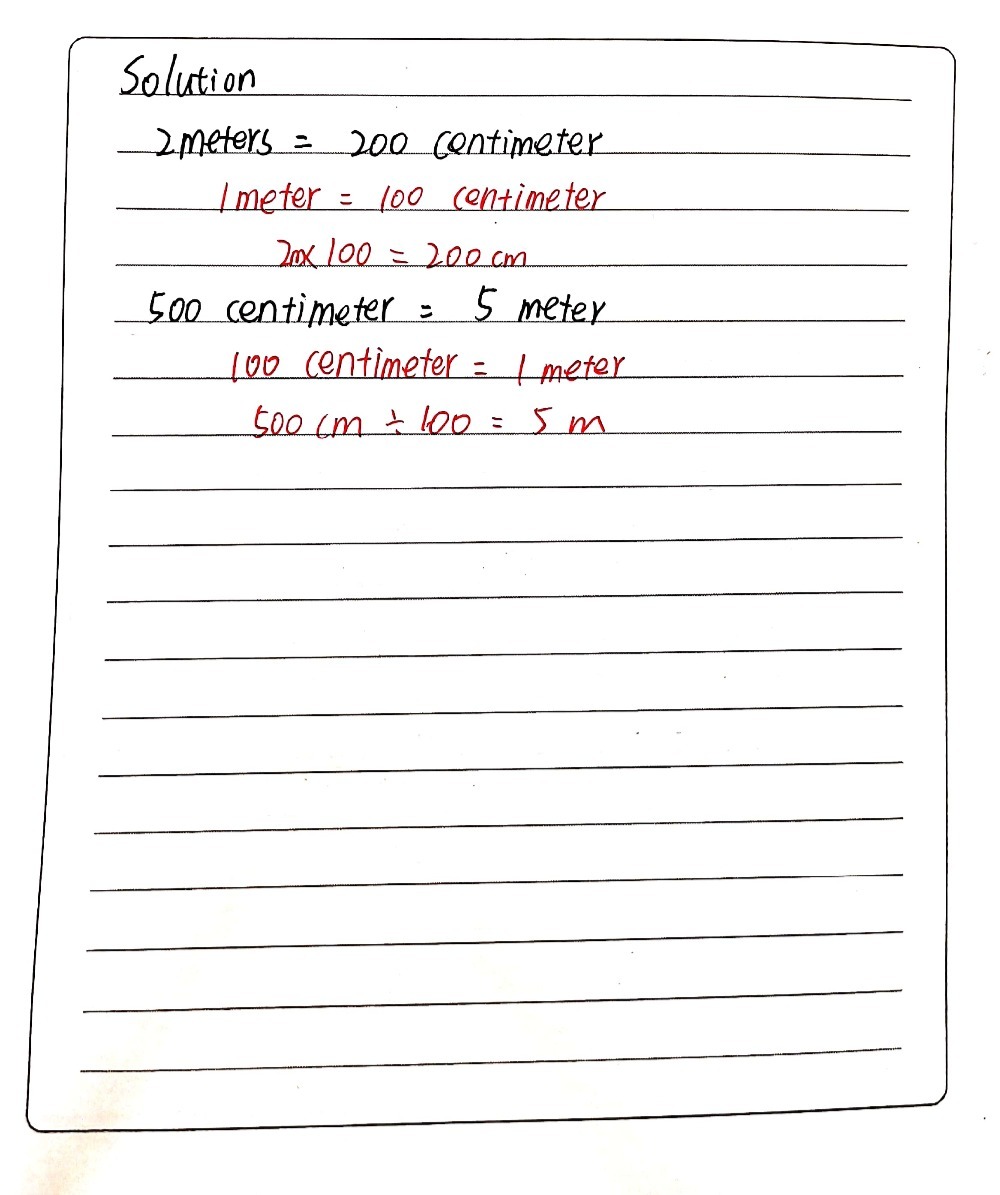 Solution
2meters = 200 centimeter
1 meter = 100 centimeter
2m x 100 = 200 cm
500 centimeter = 5 meter
100 centimeter = 1 meter
500 cm ÷ 100 = 5 m